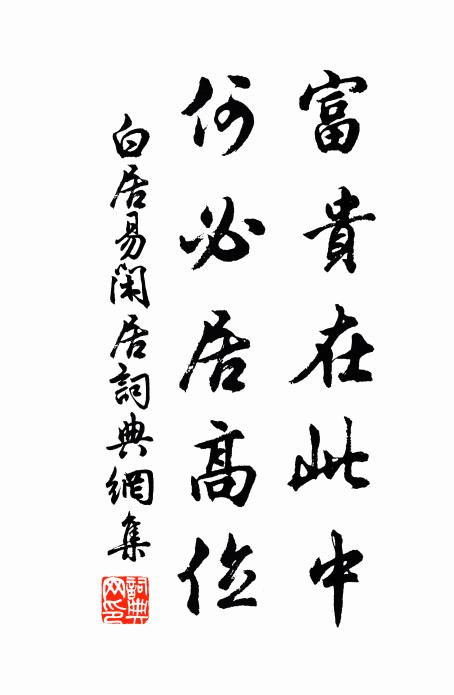 富貴在此中
何必居高位
白居易閑居詞典網集
詞典
網印